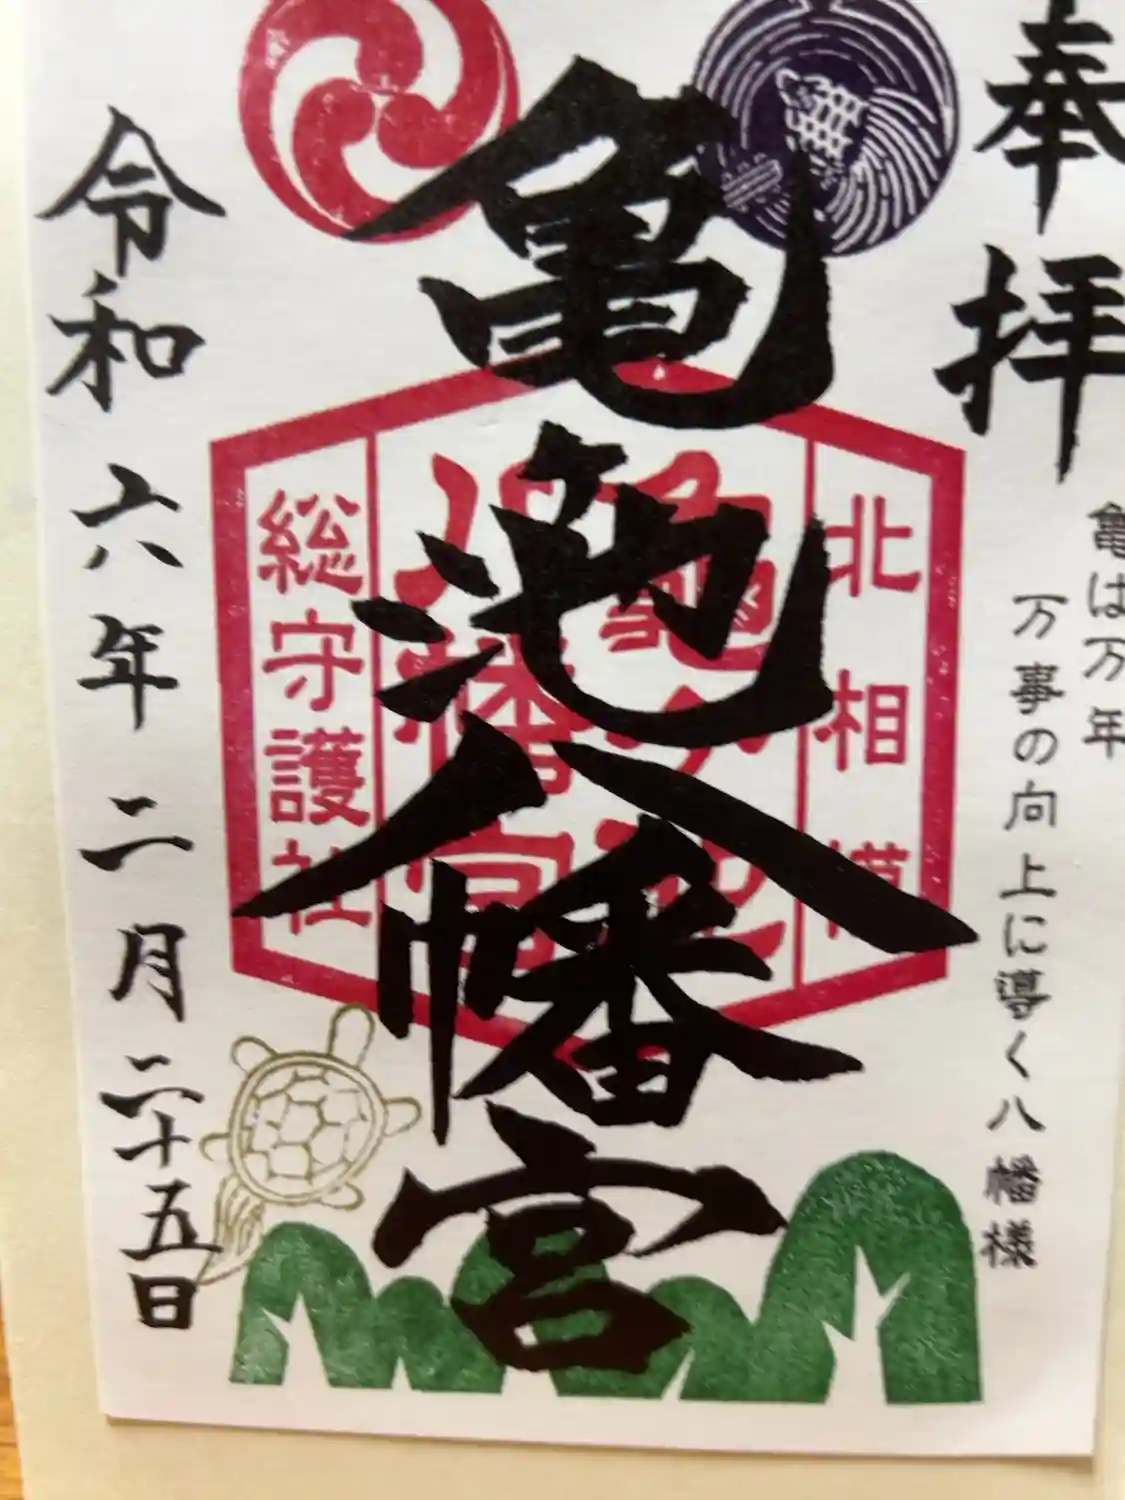 奉拝
亀は万年
万事の向上に導く八幡様
亀池八幡宮
北相模
総守護社
令和六年二月二十五日